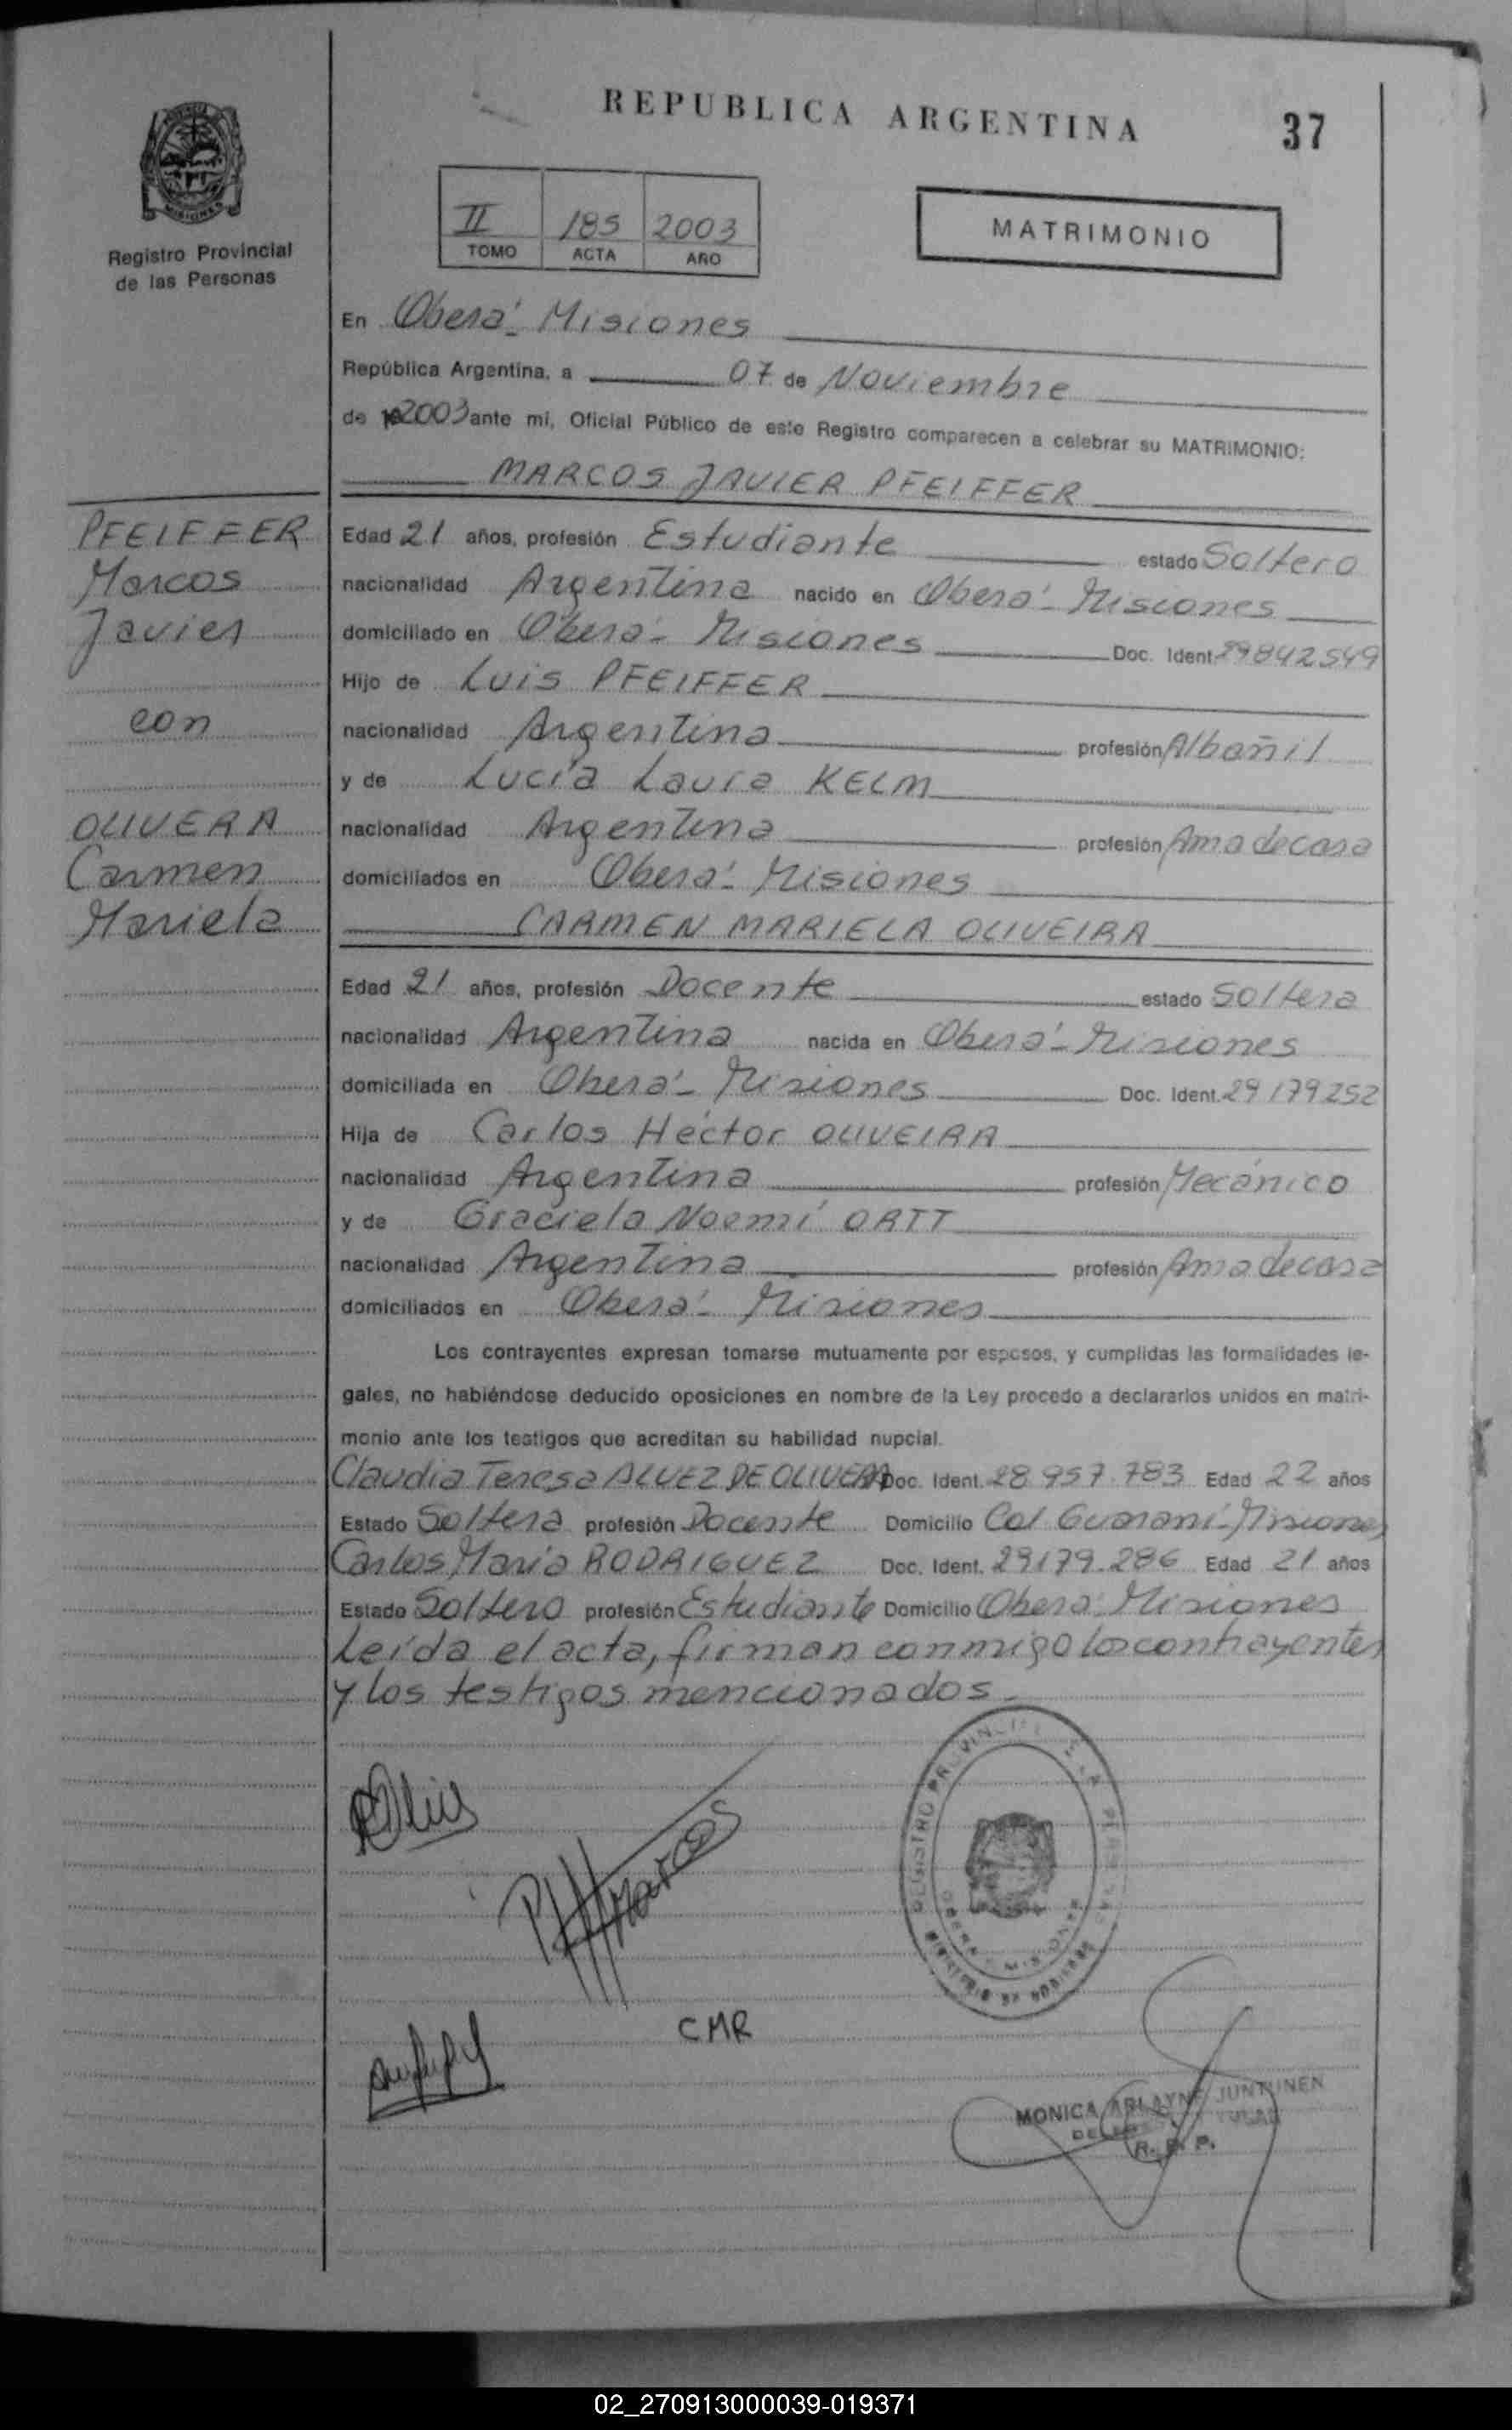 REPUBLICA ARGENTINA
37
PROVINCIA
MISIONES
Registro Provincial
de las Personas
II 185 2003
TOMO ACTA AÑO
MATRIMONIO
En Oberá - Misiones
República Argentina, a 07 de Noviembre
de 2003 ante mi, Oficial Público de este Registro comparecen a celebrar su MATRIMONIO:
MARCOS JAVIER PFEIFFER
PFEIFFER
Marcos
Javier
con
OLIVERA
Carmen
Mariela
Edad 21 años, profesión Estudiante estado Soltero
nacionalidad Argentina nacido en Oberá - Misiones
domiciliado en Oberá - Misiones Doc. Ident. 29842549
Hijo de Luis PFEIFFER
nacionalidad Argentina profesión Albañil
y de Lucía Laura KELM
nacionalidad Argentina profesión Ama de casa
domiciliados en Oberá - Misiones
CARMEN MARIELA OLIVEIRA
Edad 21 años, profesión Docente estado Soltera
nacionalidad Argentina nacida en Oberá - Misiones
domiciliada en Oberá - Misiones Doc. Ident. 29179252
Hija de Carlos Héctor OLIVEIRA
nacionalidad Argentina profesión Mecánico
y de Graciela Noemí ORTT
nacionalidad Argentina profesión Ama de casa
domiciliados en Oberá - Misiones
Los contrayentes expresan tomarse mutuamente por esposos, y cumplidas las formalidades le-
gales, no habiéndose deducido oposiciones en nombre de la Ley procedo a declararlos unidos en matri-
monio ante los testigos que acreditan su habilidad nupcial.
Claudia Teresa ALVEZ DE OLIVERA Doc. Ident. 28.957.783 Edad 22 años
Estado Soltera profesión Docente Domicilio Col Guaraní - Misiones
Carlos María RODRIGUEZ Doc. Ident. 29179.286 Edad 21 años
Estado Soltero profesión Estudiante Domicilio Oberá - Misiones
Leída el acta, firman conmigo los contrayentes
y los testigos mencionados.-
REGISTRO PROVINCIAL DE LAS PERSONAS
MINISTERIO DE GOBIERNO
OBERA MISIONES
Marcos
CMR
MONICA ARLAYNE JUNTUNEN
R. P. P.
02_270913000039-019371